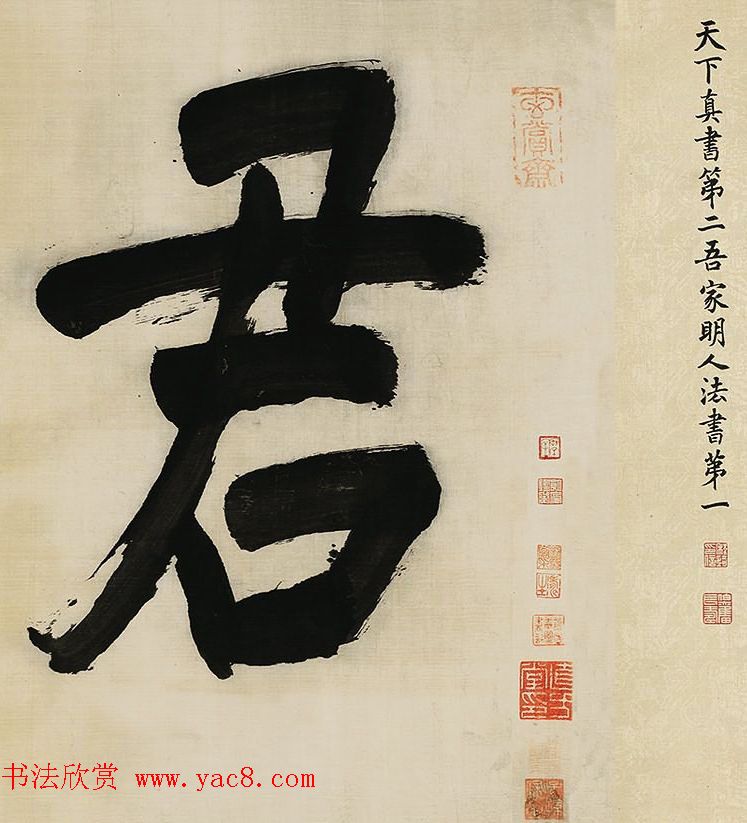 天下真書第二吾家明人法書第一
君
书法欣赏 www.yac8.com